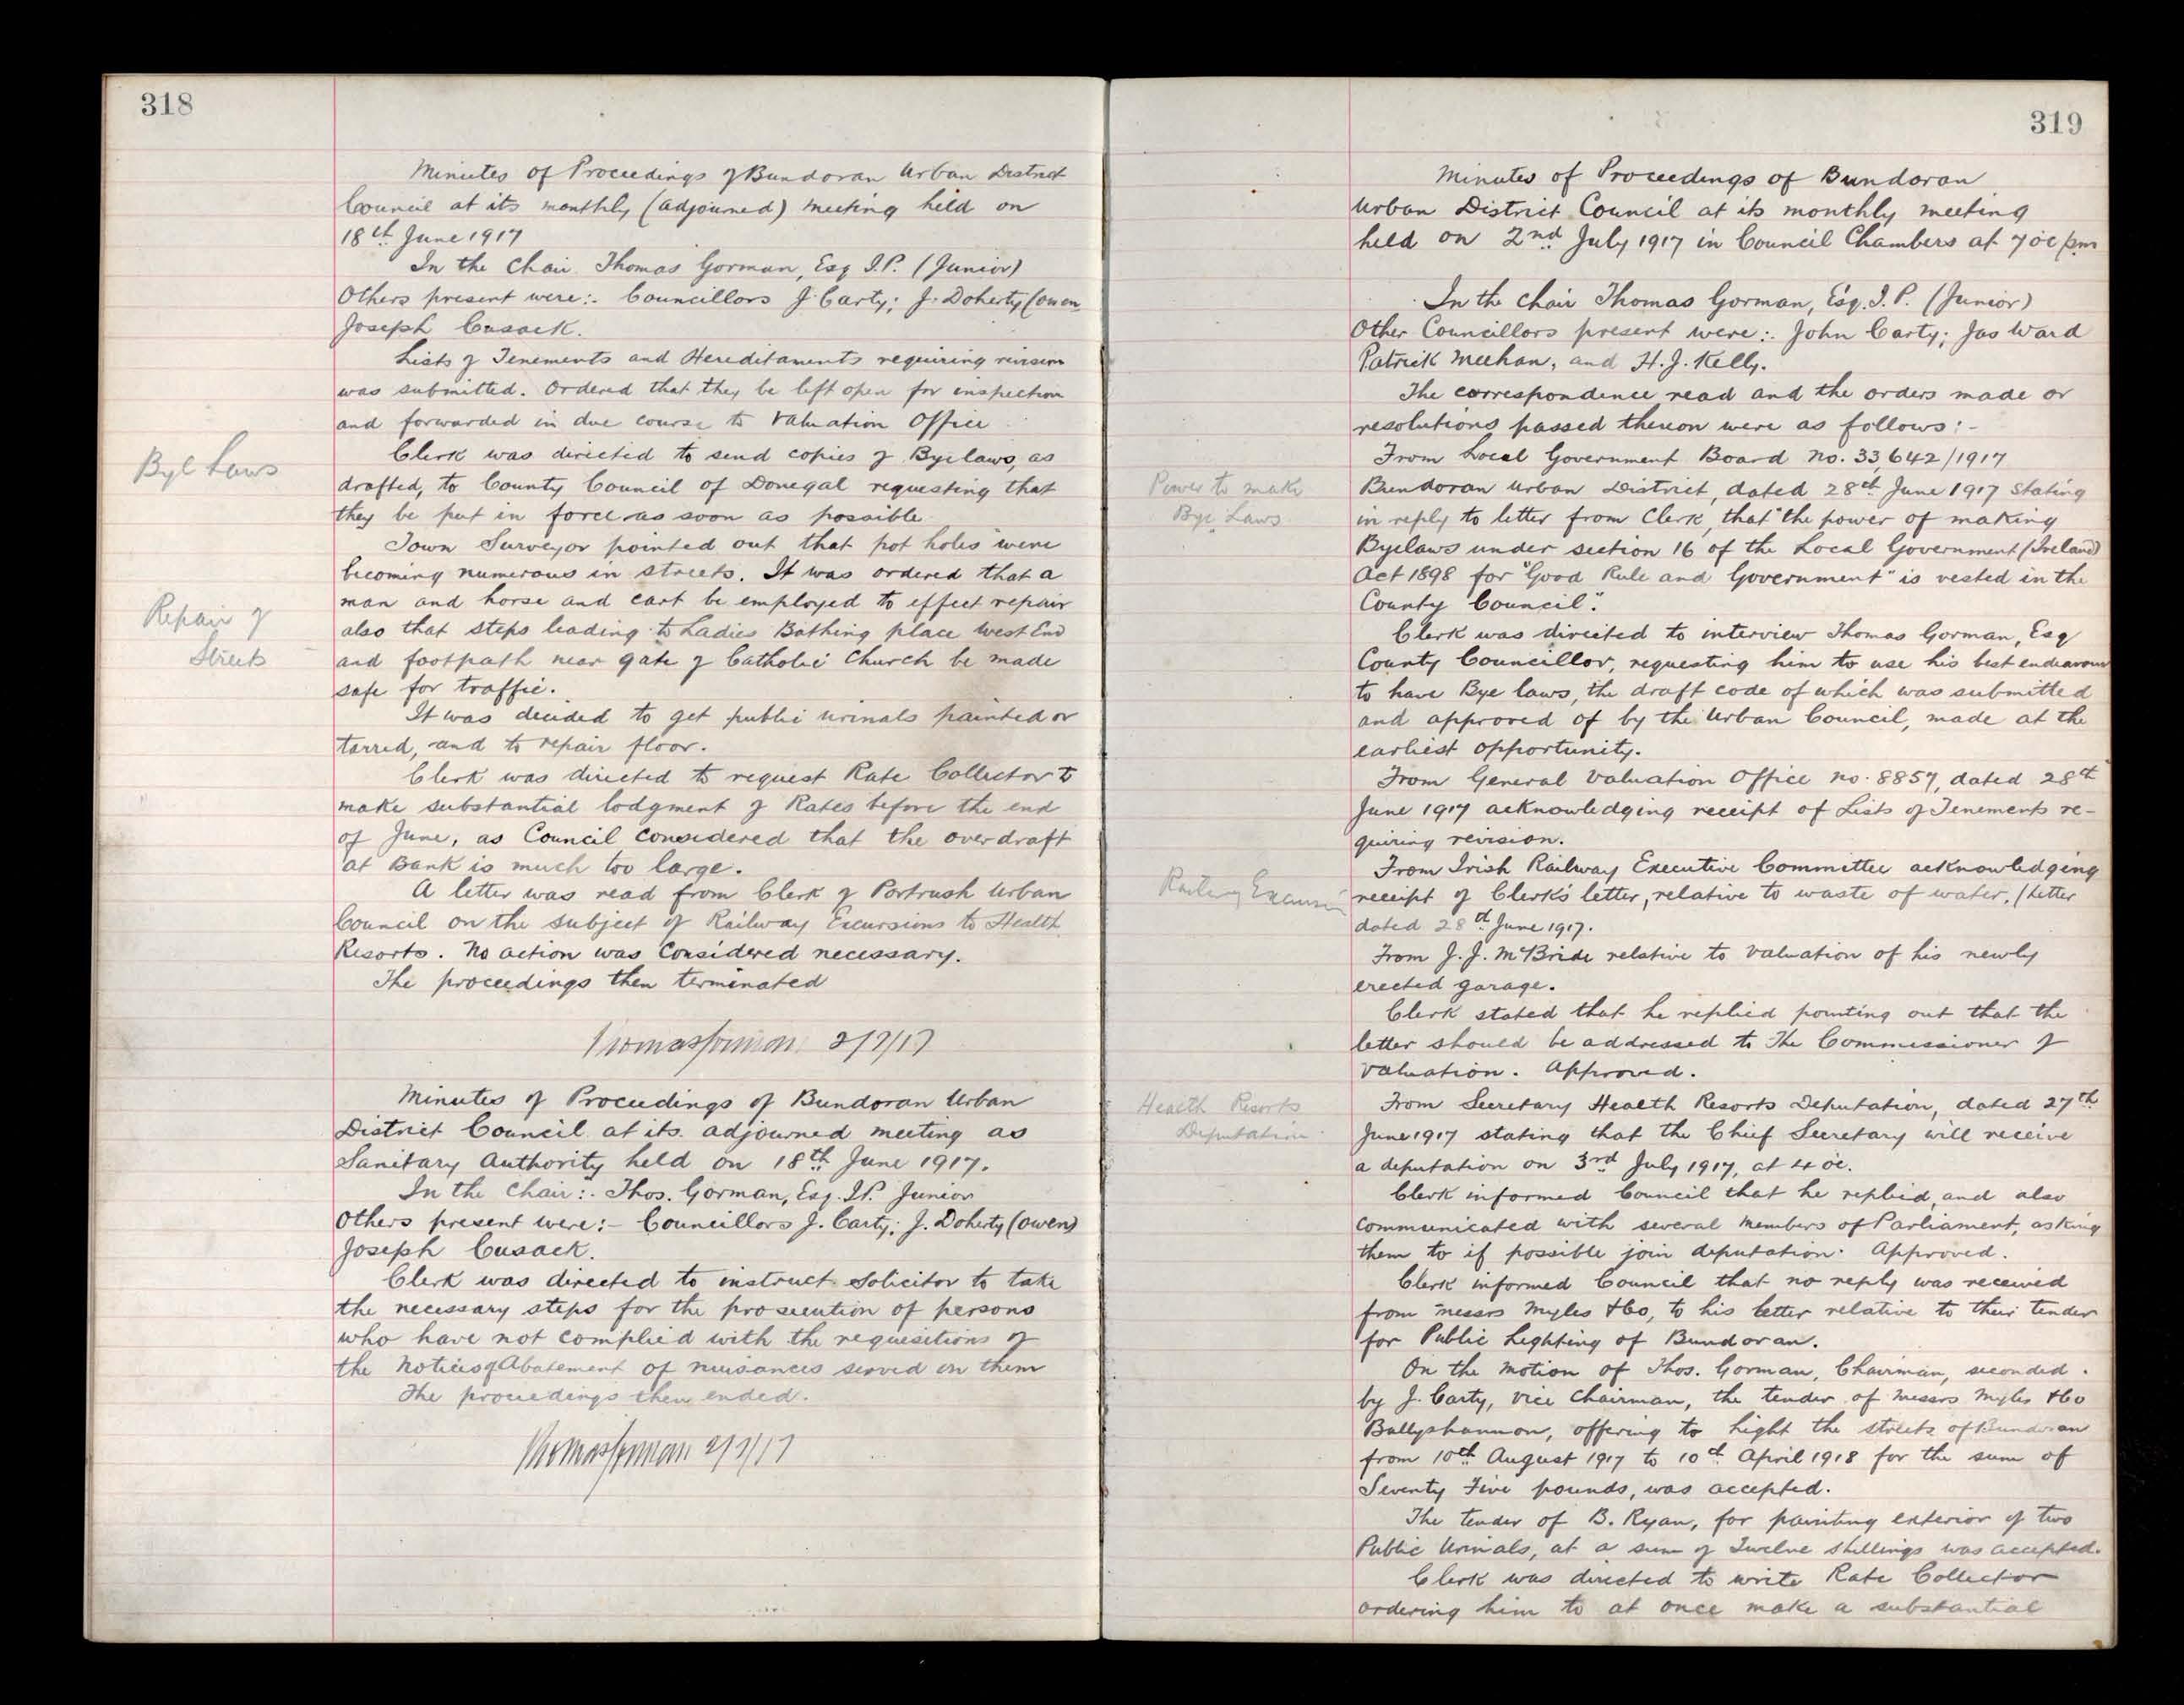 318
Minutes of Proceedings of Bundoran Urban District
Council at its monthly (adjourned) meeting held on
18th June 1917
In the Chair Thomas Gorman, Esq J.P. (Junior)
Others present were:- Councillors J. Carty; J. Doherty (Owen
Joseph Cusack.
Lists of Tenements and Hereditaments requiring revision
was submitted. Ordered that they be left open for inspection
and forwarded in due course to Valuation Office
Bye Laws
Clerk was directed to send copies of Byelaws, as
drafted, to County Council of Donegal requesting that
they be put in force as soon as possible
Town Surveyor pointed out that pot holes were
becoming numerous in streets. It was ordered that a
Repair of
Streets
man and horse and cart be employed to effect repair
also that steps leading to Ladies Bathing place West End
and footpath near gate of Catholic Church be made
safe for traffic.
It was decided to get public urinals painted or
tarred, and to repair floor.
Clerk was directed to request Rate Collector to
make substantial lodgment of Rates before the end
of June, as Council considered that the overdraft
at Bank is much too large.
A letter was read from Clerk of Portrush Urban
Council on the subject of Railway Excursions to Health
Resorts. No action was considered necessary.
The proceedings then terminated
Thomas Gorman 2/7/17
Minutes of Proceedings of Bundoran Urban
District Council at its adjourned meeting as
Sanitary Authority held on 18th June 1917.
In the Chair:- Thos. Gorman, Esq. J.P. Junior
Others present were:- Councillors J. Carty; J. Doherty (Owen)
Joseph Cusack.
Clerk was directed to instruct Solicitor to take
the necessary steps for the prosecution of persons
who have not complied with the requisitions of
the Notices of Abatement of nuisances served on them
The proceedings then ended.
Thomas Gorman 2/7/17
319
Minutes of Proceedings of Bundoran
Urban District Council at its monthly meeting
held on 2nd July 1917 in Council Chambers at 7 oc pm
In the chair Thomas Gorman, Esq. J.P. (Junior)
Other Councillors present were:- John Carty; Jas Ward
Patrick Meehan, and H. J. Kelly.
The correspondence read and the orders made or
resolutions passed thereon were as follows:-
From Local Government Board No. 33,642/1917
Power to make
Bye Laws
Bundoran Urban District, dated 28th June 1917 stating
in reply to letter from Clerk, that "the power of making
Byelaws under section 16 of the Local Government (Ireland)
Act 1898 for "Good Rule and Government" is vested in the
County Council".
Clerk was directed to interview Thomas Gorman, Esq
County Councillor, requesting him to use his best endeavour
to have Bye laws, the draft code of which was submitted
and approved of by the Urban Council, made at the
earliest opportunity.
From General Valuation Office no. 8857, dated 28th
June 1917 acknowledging receipt of Lists of Tenements re-
quiring revision.
From Irish Railway Executive Committee acknowledging
receipt of Clerk's letter, relative to waste of water. (Letter
dated 28th June 1917.
From J. J. McBride relative to valuation of his newly
erected garage.
Clerk stated that he replied pointing out that the
letter should be addressed to The Commissioner of
Valuation. Approved.
Health Resorts
Deputation
From Secretary Health Resorts Deputation, dated 27th
June 1917 stating that the Chief Secretary will receive
a deputation on 3rd July 1917, at 4 oc.
Clerk informed Council that he replied, and also
communicated with several members of Parliament, asking
them to if possible join deputation. Approved.
Clerk informed Council that no reply was received
from Messrs Myles & Co, to his letter relative to their tender
for Public Lighting of Bundoran.
On the motion of Thos. Gorman, Chairman, seconded
by J. Carty, Vice Chairman, the tender of Messrs Myles & Co
Ballyshannon, offering to light the streets of Bundoran
from 10th August 1917 to 10th April 1918 for the sum of
Seventy Five pounds, was accepted.
The tender of B. Ryan, for painting exterior of two
Public Urinals, at a sum of Twelve shillings was accepted.
Clerk was directed to write Rate Collector
ordering him to at once make a substantial